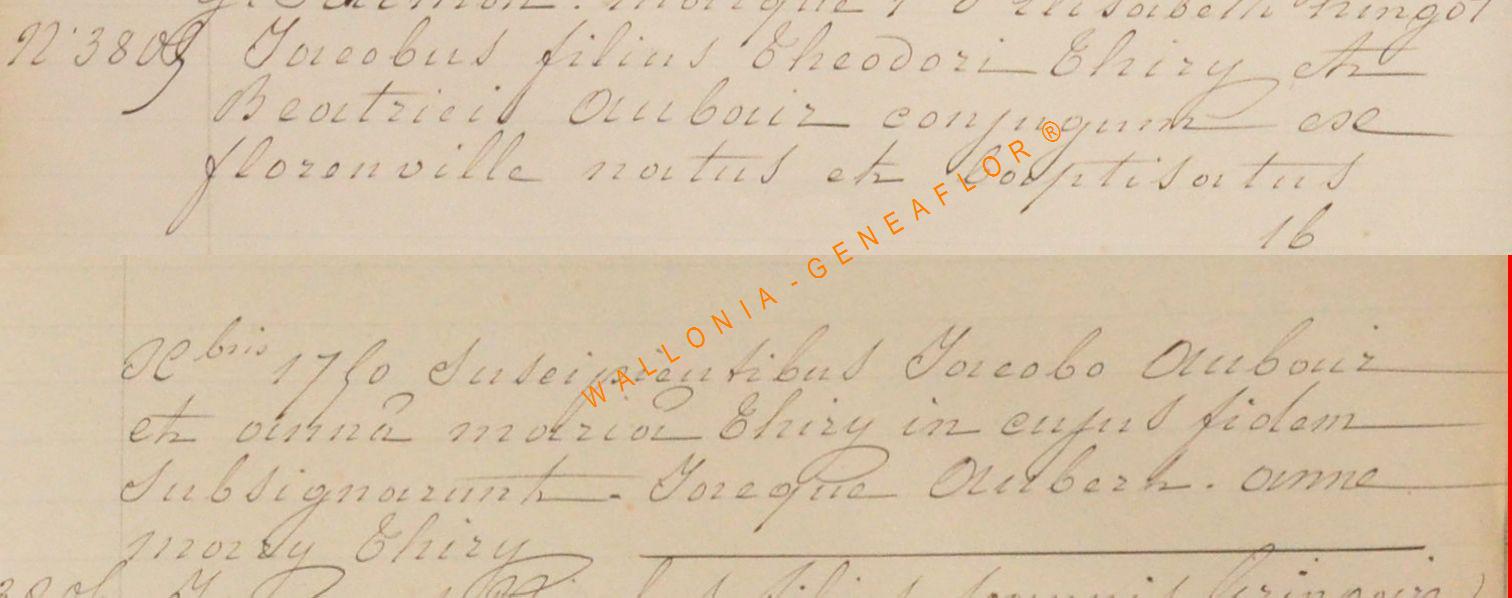 marque d'Elisabeth hingot
N° 380 Jacobus filius Theodori Thiry et
Beatricis Aubair conjugum ex
florenville natus et baptisatus
16
Xbris 1750 Suscipientibus Jacobo Aubair
et anna maria Thiry in cujus fidem
Subsignarunt - Jacque Aubert. anne
mary Thiry
filii
WALLONIA - GENEAFLOR ®